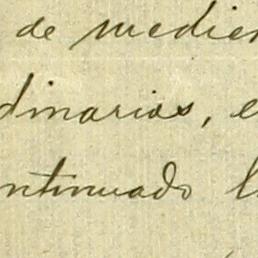 de medien
dinarias, e
ntinuado l